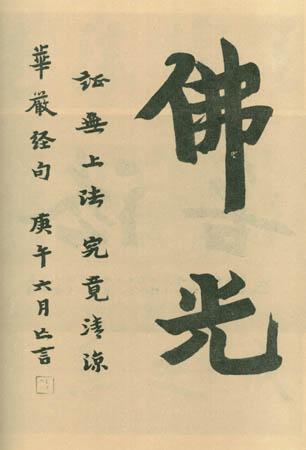 佛光
証無上法究竟清涼
華嚴经句 庚午六月亡言